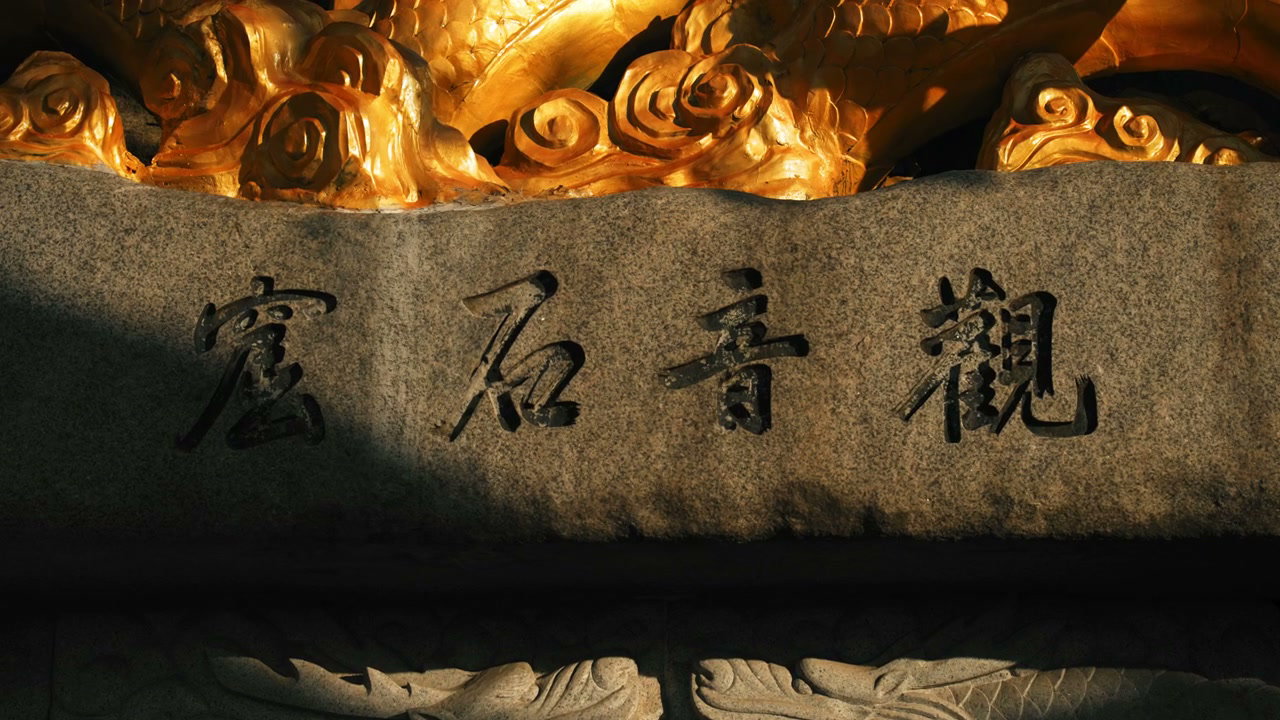 觀音石窟